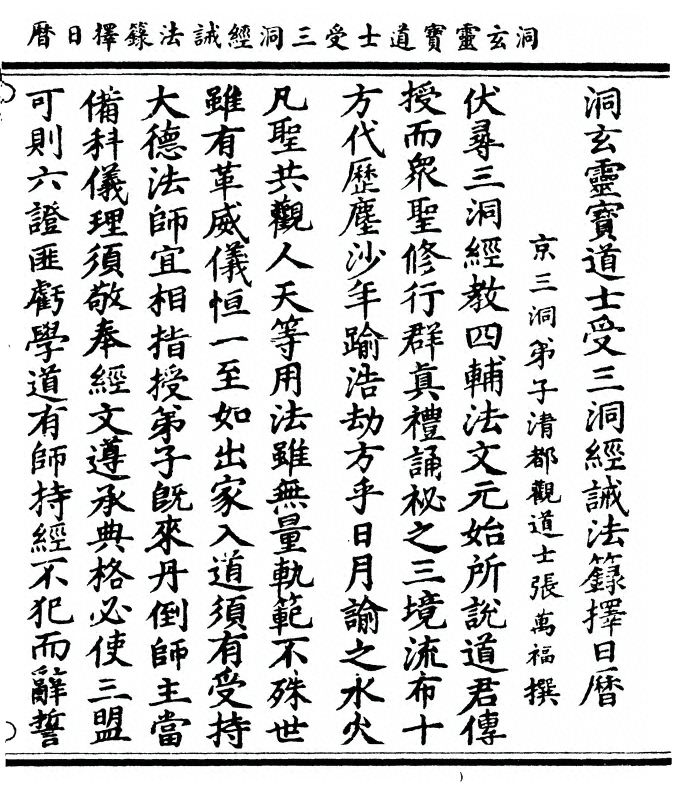 洞玄靈寶道士受三洞經誡法籙擇日曆
洞玄靈寶道士受三洞經誡法籙擇日曆
京三洞弟子清都觀道士張萬福撰
伏尋三洞經教四輔法文元始所說道君傳
授而衆聖修行群真禮誦祕之三境流布十
方代歷塵沙年踰浩劫方乎日月諭之水火
凡聖共觀人天等用法雖無量軌範不殊世
雖有革威儀恒一至如出家入道須有受持
大德法師宜相指授弟子既來丹倒師主當
備科儀理須敬奉經文遵承典格必使三盟
可則六證匪虧學道有師持經不犯而辭誓